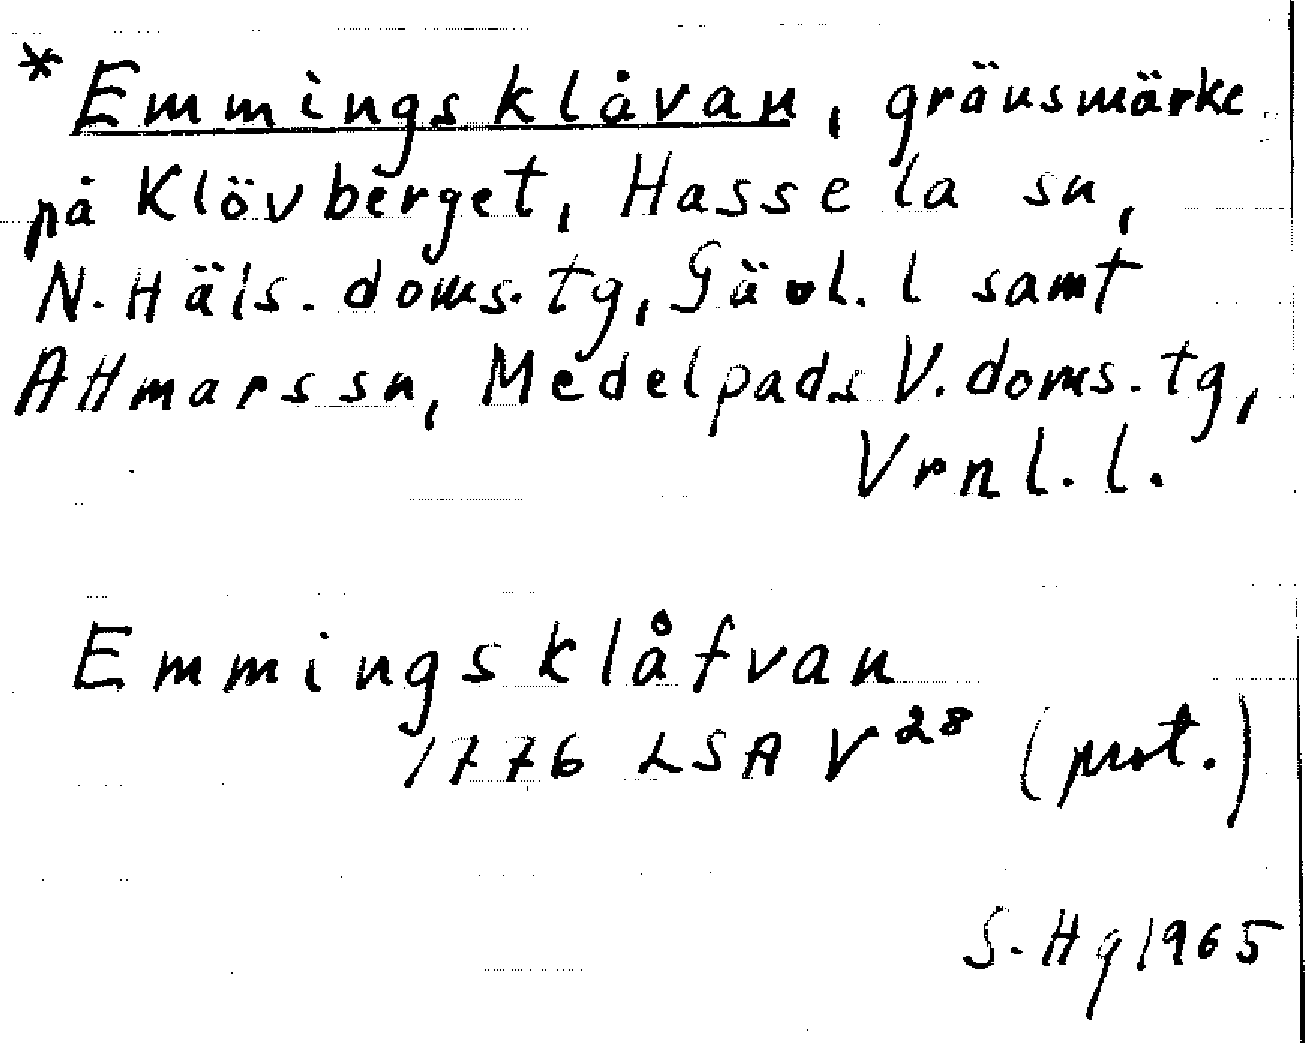 *Emmingsklåvan, gränsmärke
på Klövberget, Hassela sn,
N. Häls. doms. tg, Gävl. l samt
Attmars sn, Medelpads V. doms. tg,
Vrnl. l.
Emmingsklåfvan
1776 LSA V28 (prot.)
S. Hg 1965